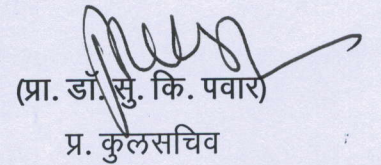 (प्रा. डॉ. सु. कि. पवार)
प्र. कुलसचिव